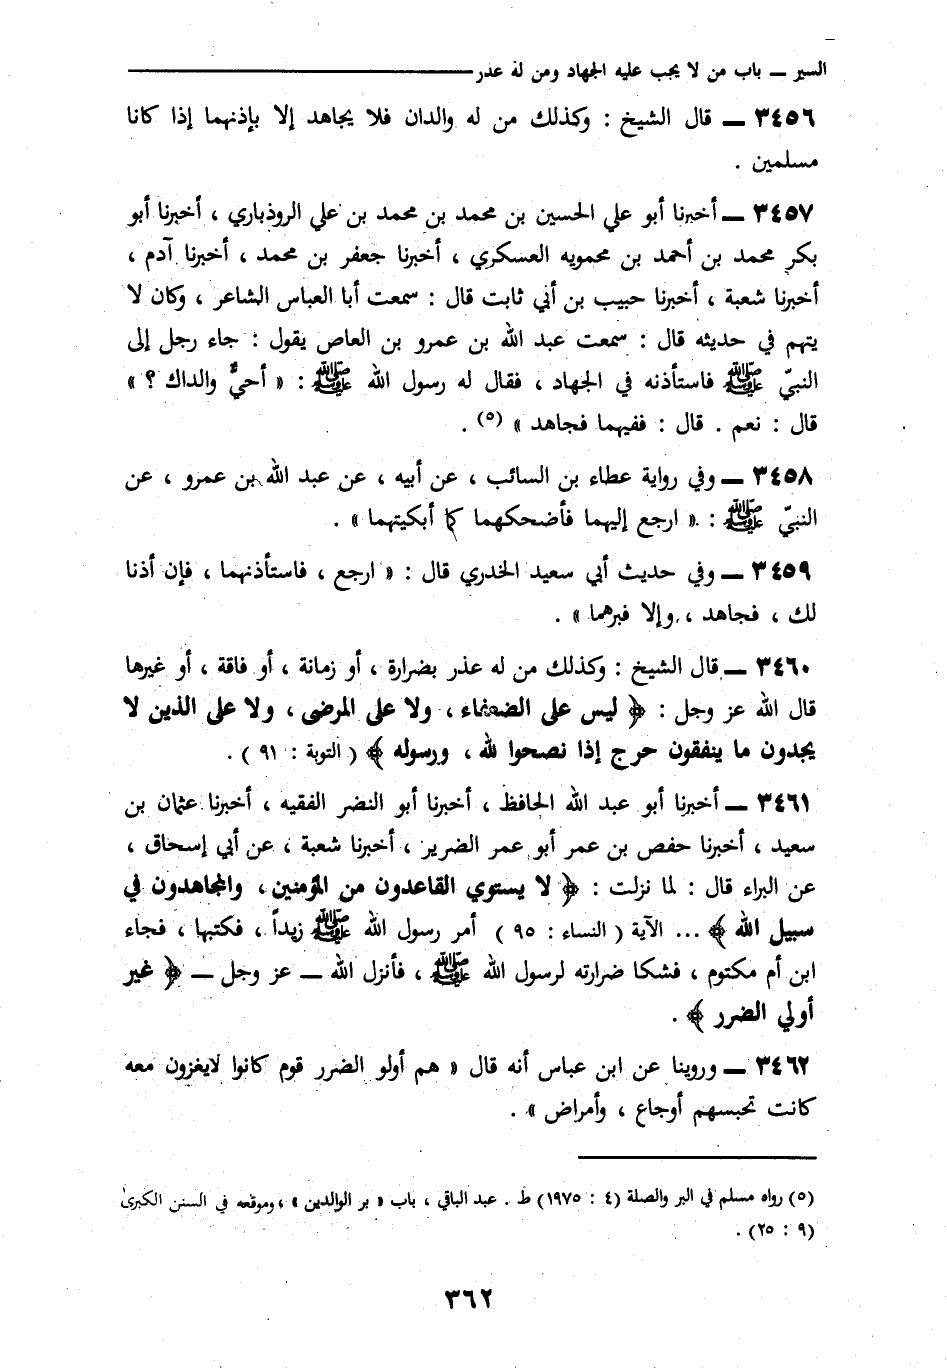 السير — باب من لا يجب عليه الجهاد ومن له عذر
٣٤٥٦ — قال الشيخ : وكذلك من له والدان فلا يجاهد إلا بإذنهما إذا كانا
مسلمين .
٣٤٥٧ — أخبرنا أبو علي الحسين بن محمد بن محمد بن علي الروذباري ، أخبرنا أبو
بكر محمد بن أحمد بن محمويه العسكري ، أخبرنا جعفر بن محمد ، أخبرنا آدم ،
أخبرنا شعبة ، أخبرنا حبيب بن أبي ثابت قال : سمعت أبا العباس الشاعر ، وكان لا
يتهم في حديثه قال : سمعت عبد الله بن عمرو بن العاص يقول : جاء رجل إلى
النبيّ ﷺ فاستأذنه في الجهاد ، فقال له رسول الله ﷺ : « أحيٌّ والداك ؟ »
قال : نعم . قال : ففيهما فجاهد » (٥) .
٣٤٥٨ — وفي رواية عطاء بن السائب ، عن أبيه ، عن عبد الله بن عمرو ، عن
النبيّ ﷺ : « ارجع إليهما فأضحكهما كما أبكيتهما » .
٣٤٥٩ — وفي حديث أبي سعيد الخدري قال : « ارجع ، فاستأذنهما ، فإن أذنا
لك ، فجاهد ، وإلا فبرهما » .
٣٤٦٠ — قال الشيخ : وكذلك من له عذر بضرارة ، أو زمانة ، أو فاقة ، أو غيرها
قال الله عز وجل : ﴿ ليس على الضعفاء ، ولا على المرضى ، ولا على الذين لا
يجدون ما ينفقون حرج إذا نصحوا لله ، ورسوله ﴾ ( التوبة : ٩١ ) .
٣٤٦١ — أخبرنا أبو عبد الله الحافظ ، أخبرنا أبو النضر الفقيه ، أخبرنا عثمان بن
سعيد ، أخبرنا حفص بن عمر أبو عمر الضرير ، أخبرنا شعبة ، عن أبي إسحاق ،
عن البراء قال : لما نزلت : ﴿ لا يستوي القاعدون من المؤمنين ، والمجاهدون في
سبيل الله ﴾ ... الآية ( النساء : ٩٥ ) أمر رسول الله ﷺ زيداً ، فكتبها ، فجاء
ابن أم مكتوم ، فشكا ضرارته لرسول الله ﷺ ، فأنزل الله — عز وجل — ﴿ غير
أولي الضرر ﴾ .
٣٤٦٢ — وروينا عن ابن عباس أنه قال « هم أولو الضرر قوم كانوا لايغزون معه
كانت تحبسهم أوجاع ، وأمراض » .
(٥) رواه مسلم في البر والصلة (٤ : ١٩٧٥) ط . عبد الباقي ، باب « بر الوالدين » ، وموقعه في السنن الكبرى
(٩ : ٢٥) .
٣٦٢